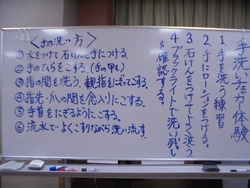 手洗い チェック 体験
1、手を洗う練習
2、手にローションをつける。
3、石けんをつけてよく洗う
4、ブラックライトで洗い残しを確認する。
<手の洗い方>
① 水をつけて石けんを手につける。
② 手のひらをこする。(手の甲も)
③ 指の間を洗う、親指をねじってこする。
④ 指先・爪の間を念入りにこする。
⑤ 手首をにぎるようにこする。
⑥ 流水でよくこすりながら洗い流す